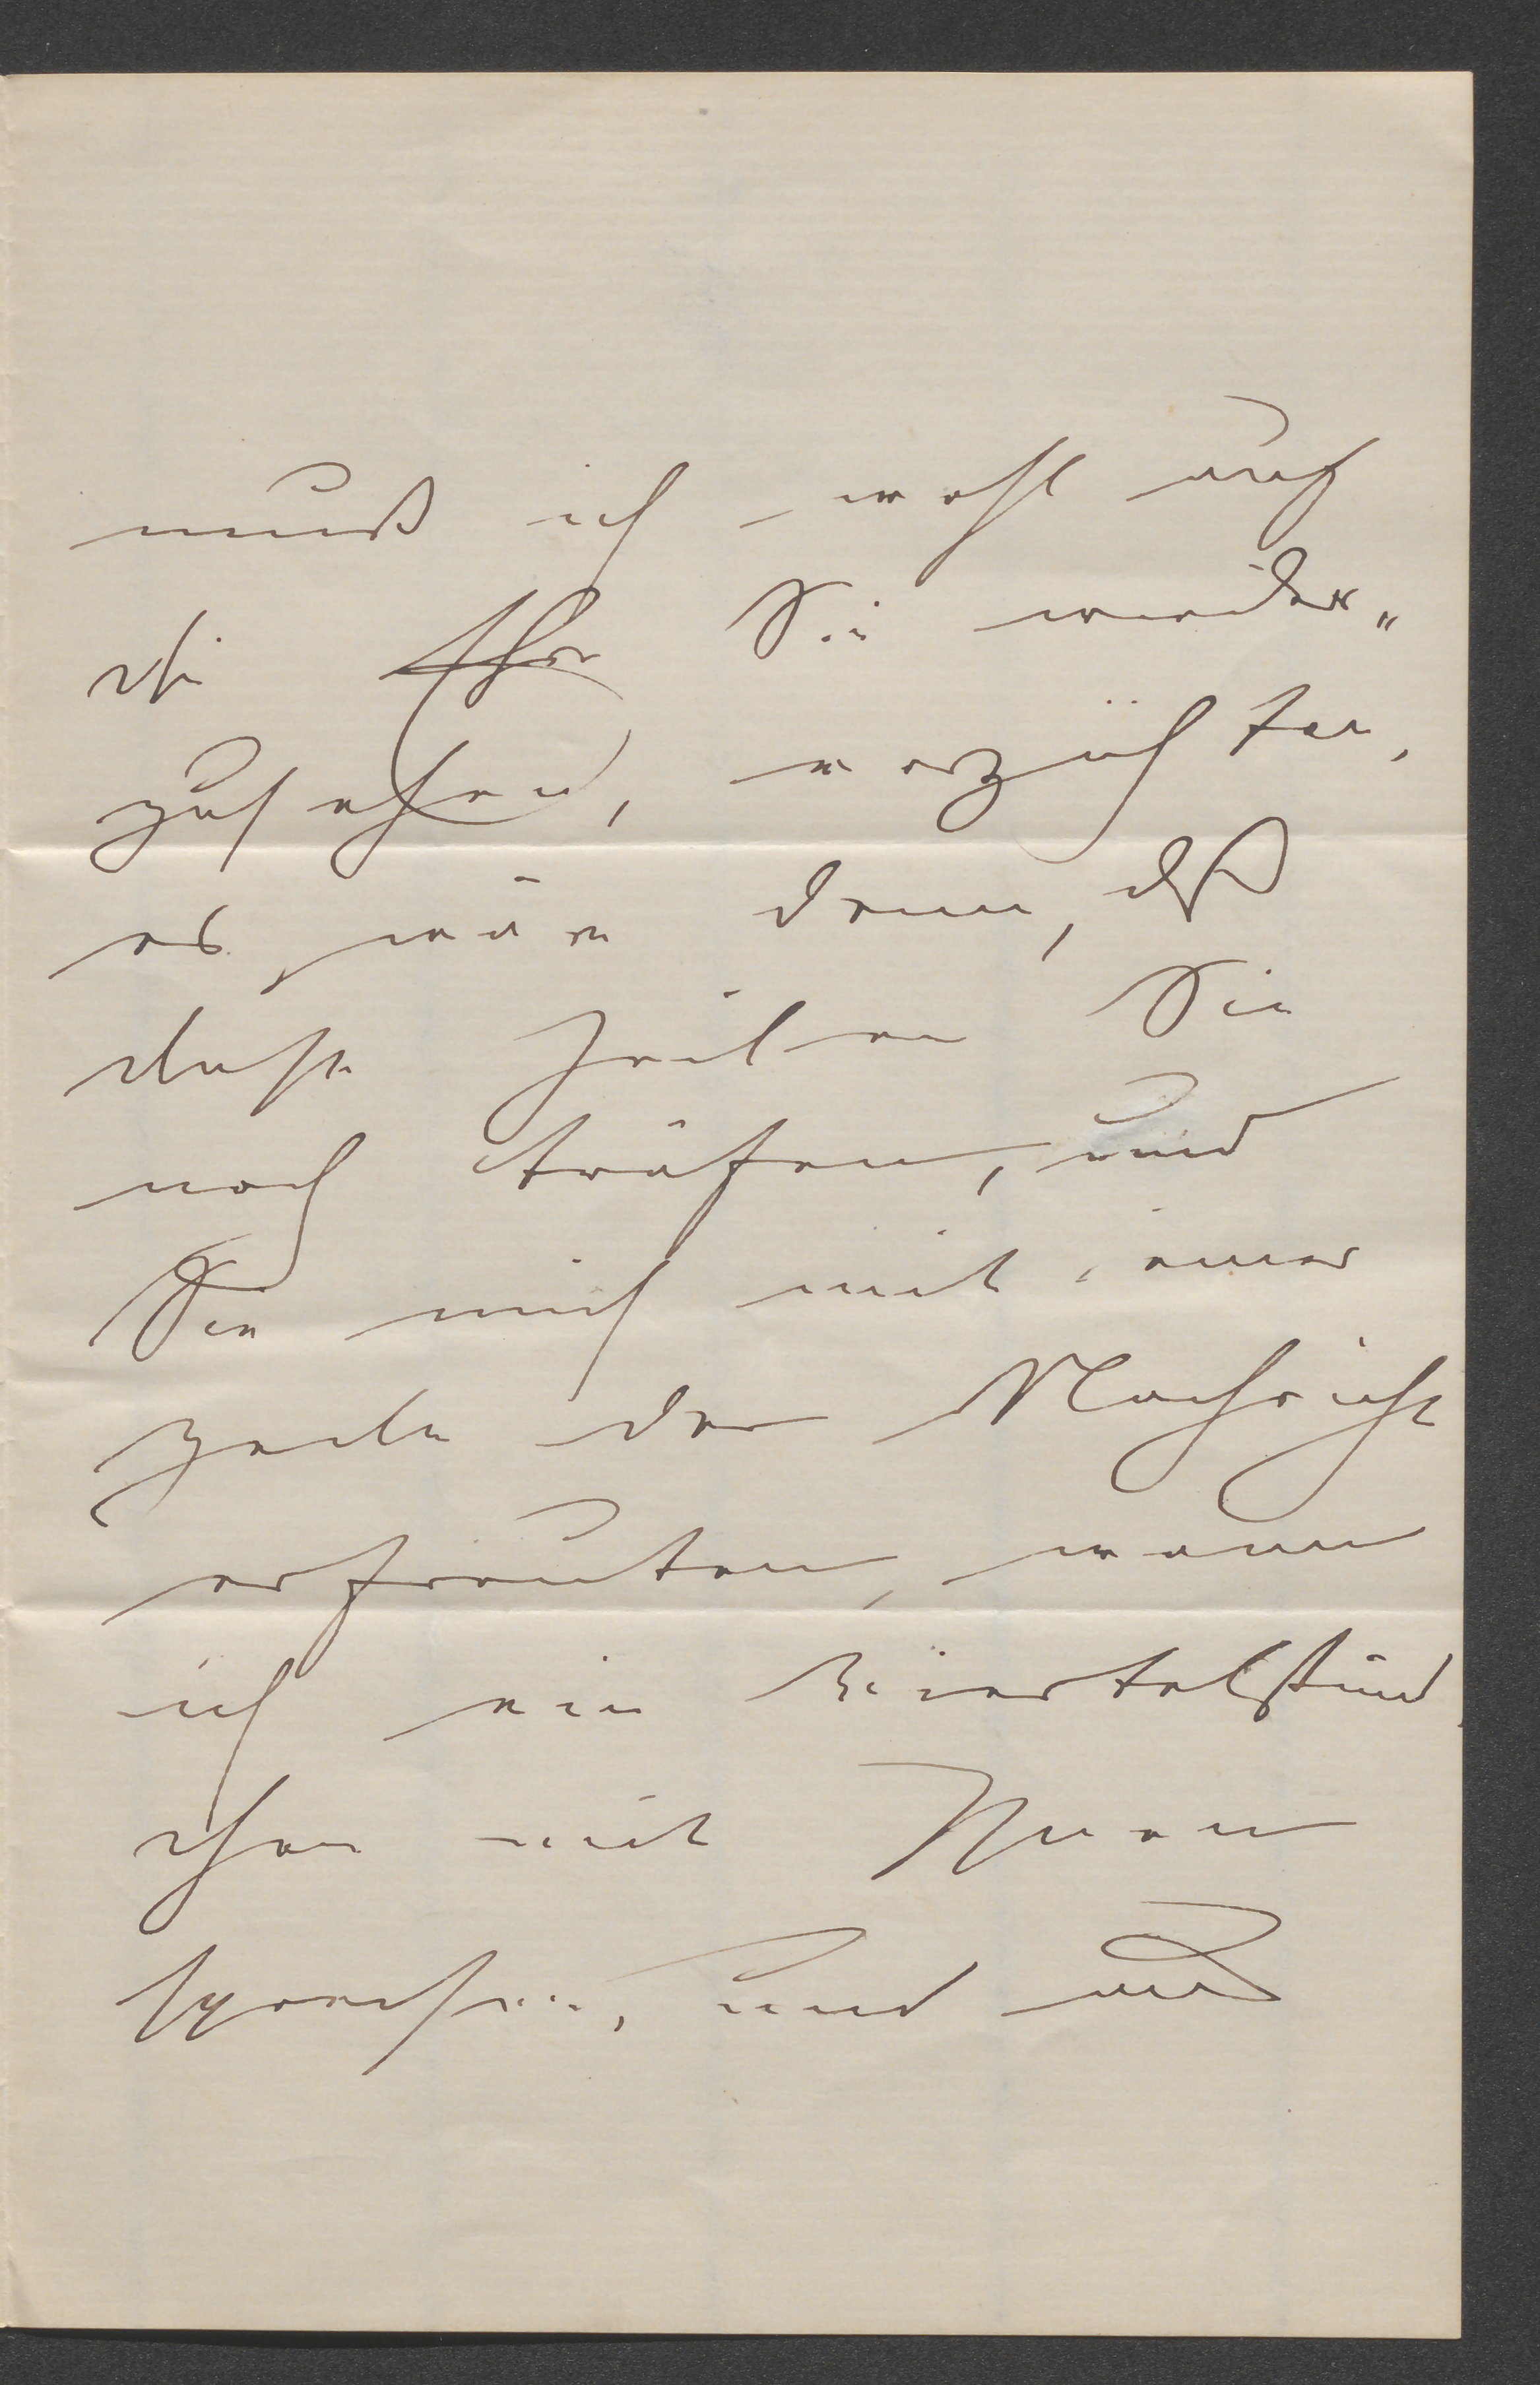 muß ich wohl auf
die Ehre Sie wieder„
zusehen, verzichten,
es wäre denn, daß
diese Zeilen Sie
noch träfen, und
Sie mich mit einer
Zeile der Nachricht
erfreuten, wann
ich ein Viertelstünd
chen mit Ihnen
sprechen, und